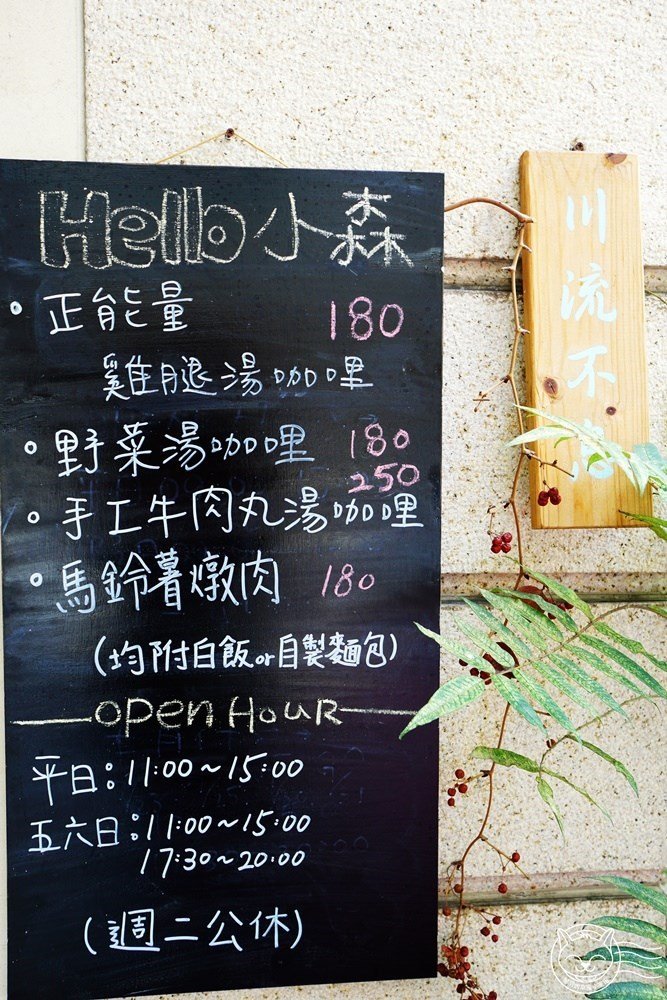 Hello 小森
• 正能量 180
雞腿湯咖哩
• 野菜湯咖哩 180
250
• 手工牛肉丸湯咖哩
• 馬鈴薯燉肉 180
(均附白飯or自製麵包)
OPEN HOUR
平日:11:00~15:00
五六日:11:00~15:00
17:30~20:00
(週二公休)
川流不息